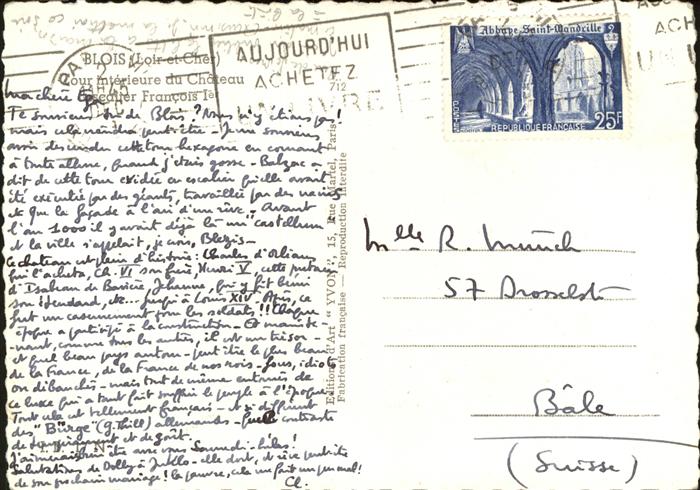 BLOIS (Loir-et-Cher)
Cour intérieure du Château
Escalier François Ier
712
AUJOURD'HUI
ACHETEZ
UN LIVRE
Abbaye Saint-Wandrille
POSTES
RÉPUBLIQUE FRANÇAISE
25F
ACH
Editions d'Art "YVON", 15, Rue Martel, Paris
Fabrication française — Reproduction Interdite
Ma chère
Te souviens-tu de Blois? Nous n'y étions pas!
mais cela viendra peut-être - Je me souviens
avoir descendu cette tour hexagone en courant
à toute allure, quand j'étais gosse - Balzac a
dit de cette tour évidée en escalier qu'elle avait
été exécutée par des géants, travaillée par des nains
et que la façade à l'air d'un rêve. Avant
l'an 1000 il y avait déjà là un castellum
et la ville s'appelait, je crois, Blezis -
Le château est plein d'histoire: Charles d'Orléans
qui l'acheta, Ch. VI son frère, Henri V, cette
d'Isabeau de Bavière, Jehanne, qui y fit béni
son étendard, etc... jusqu'à Louis XIV - Après, ce
fut un casernement pour les soldats!! Chaque
époque a participé à la construction - Et mainte-
nant, comme tous les autres, il est un trésor -
et quel beau pays autour - peut-être le plus beau
de la France, de la France de nos rois - fous, idiots
ou débauchés - mais tout de même entourés de
ce luxe qui a tant fait souffrir le peuple à l'époque
Tout cela est tellement français - et si différent
des "Bürge" (g. Thill) allemands - quel contraste
de et de goût.
J'aimerais être avec vous Samedi - hélas!
Salutations de Dolly à - elle doit, rêve peut-être
de son prochain mariage! la pauvre, cela me fait un peu mal!
Cl.
Mlle R. Münch
57
Bâle
(Suisse)